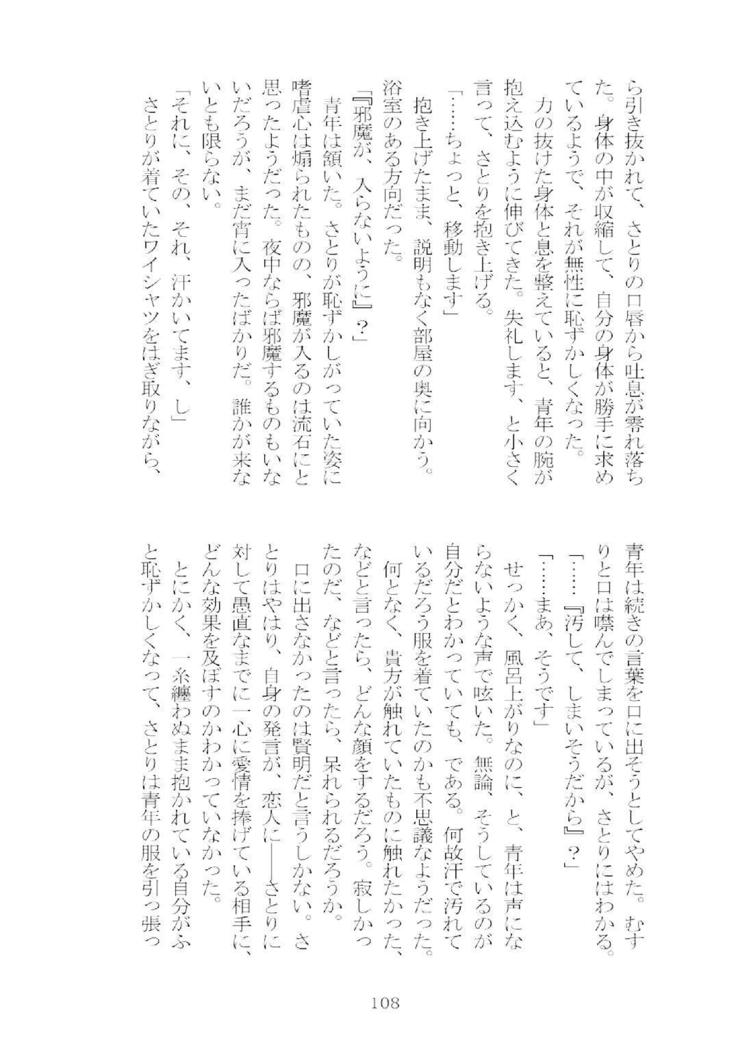 ら引き抜かれて、さとりの口唇から吐息が零れ落ち
た。身体の中が収縮して、自分の身体が勝手に求め
ているようで、それが無性に恥ずかしくなった。
　力の抜けた身体と息を整えていると、青年の腕が
抱え込むように伸びてきた。失礼します、と小さく
言って、さとりを抱き上げる。
「……ちょっと、移動します」
　抱き上げたまま、説明もなく部屋の奥に向かう。
浴室のある方向だった。
「『邪魔が、入らないように』？」
　青年は頷いた。さとりが恥ずかしがっていた姿に
嗜虐心は煽られたものの、邪魔が入るのは流石にと
思ったようだった。夜中ならば邪魔するものもいな
いだろうが、まだ宵に入ったばかりだ。誰かが来な
いとも限らない。
「それに、その、それ、汗かいてます、し」
　さとりが着ていたワイシャツをはぎ取りながら、
青年は続きの言葉を口に出そうとしてやめた。むす
りと口は噤んでしまっているが、さとりにはわかる。
「……『汚して、しまいそうだから』？」
「……まあ、そうです」
　せっかく、風呂上がりなのに、と、青年は声にな
らないような声で呟いた。無論、そうしているのが
自分だとわかっていても、である。何故汗で汚れて
いるだろう服を着ていたのかも不思議なようだった。
　何となく、貴方が触れていたものに触れたかった、
などと言ったら、どんな顔をするだろう。寂しかっ
たのだ、などと言ったら、呆れられるだろうか。
　口に出さなかったのは賢明だと言うしかない。さ
とりはやはり、自身の発言が、恋人に――さとりに
対して愚直なまでに一心に愛情を捧げている相手に、
どんな効果を及ぼすのかわかっていなかった。
　とにかく、一糸纏わぬまま抱かれている自分がふ
と恥ずかしくなって、さとりは青年の服を引っ張っ
108